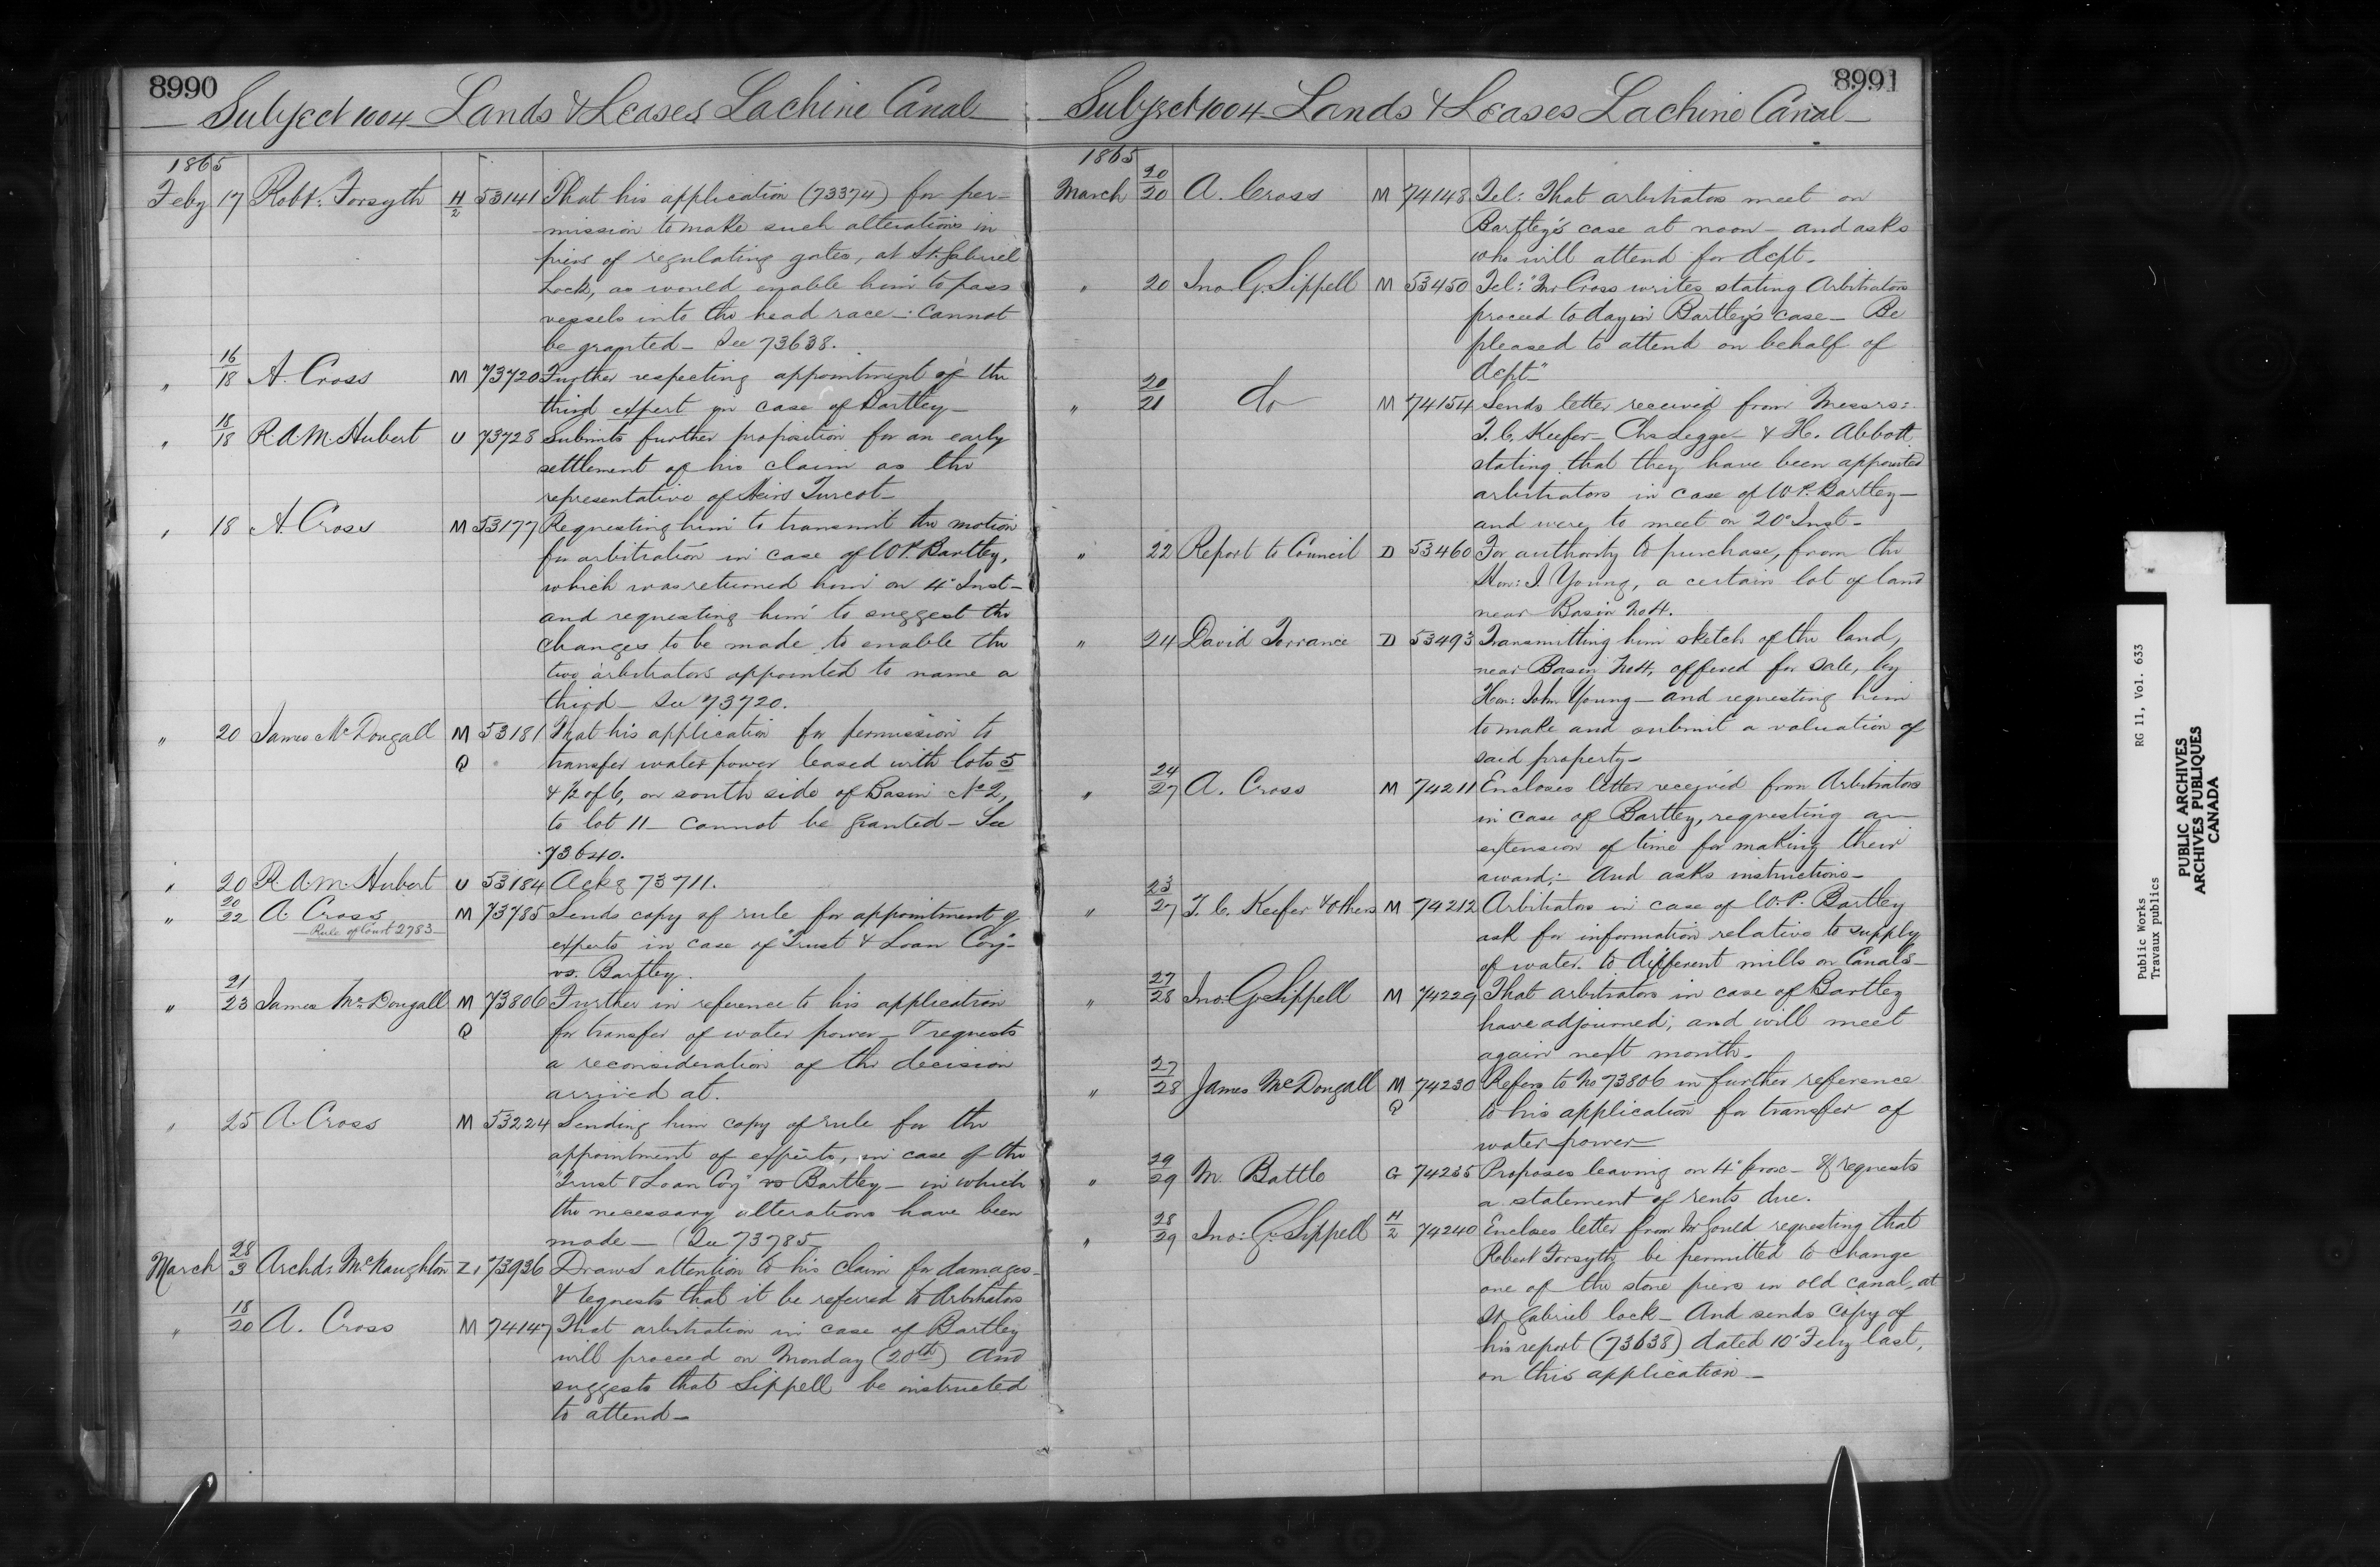 8990
Subject 1004 Lands & Leases Lachine Canal
1865
Feby 17 Robt. Forsyth H/2 53141 That his application (73374) for per-
mission to make such alterations in
piers of regulating gates, at St. Gabriel
Lock, as would enable him to pass
vessels into the head race —: cannot
be granted — See 73638.
" 16/18 A. Cross M 73720 Further respecting appointment of the
third expert in case of Bartley —
" 18/18 R.A.M. Hubert U 73728 Submits further proposition for an early
settlement of his claim as the
representative of Heirs Turcot —
" 18 A. Cross M 53177 Requesting him to transmit the motion
for arbitration in case of W.P. Bartley,
which was returned him on 4" Inst —
and requesting him to suggest the
changes to be made to enable the
two arbitrators appointed to name a
third — See 73720.
" 20 James McDougall M 53181 That his application for permission to
Q transfer water power leased with lots 5
& ½ of 6, on south side of Basin No 2,
to lot 11 — cannot be granted — See
73640.
" 20 R.A.M. Hubert U 53184 Ackg 73711.
" 20/22 A. Cross M 73785 Sends copy of rule for appointment of
— Rule of Court 2783 —
experts in case of "Trust & Loan Coy"
vs. Bartley.
" 21/23 James McDougall M 73806 Further in reference to his application
Q for transfer of water power — & requests
a reconsideration of the decision
arrived at.
" 25 A. Cross M 53224 Sending him copy of rule for the
appointment of experts, in case of the
"Trust & Loan Coy" vs Bartley — in which
the necessary alterations have been
made — (See 73785
March 28/3 Archd: McNaughton Z1 73936 Draws attention to his claim for damages —
& requests that it be referred to Arbitrators
" 18/20 A. Cross M 74147 That arbitration in case of Bartley
will proceed on Monday (20th) and
suggests that Sippell be instructed
to attend —
8991
Subject 1004 Lands & Leases Lachine Canal
1865
March 20/20 A. Cross M 74148 Tel: That arbitrators meet on
Bartley's case at noon — and asks
who will attend for dept —
" 20 Jno. G. Sippell M 53450 Tel: "Mr Cross writes stating Arbitrators
proceed to day in Bartley's case — Be
pleased to attend on behalf of
dept —"
" 20/21 do M 74154 Sends letter received from Messrs:
T.C. Keefer — Chs Legge — & H. Abbott
stating that they have been appointed
arbitrators in case of W.P. Bartley —
and were to meet on 20" Inst —
" 22 Report to Council D 53460 For authority to purchase, from the
Hon: J. Young, a certain lot of land
near Basin No 4.
" 24 David Torrance D 53493 Transmitting him sketch of the land,
near Basin No 4, offered for sale, by
Hon: John Young — and requesting him
to make and submit a valuation of
said property —
" 24/27 A. Cross M 74211 Encloses letter received from Arbitrators
in case of Bartley, requesting an
extension of time for making their
award; — And asks instructions —
" 23/27 T.C. Keefer & Others M 74212 Arbitrators in case of W.P. Bartley
ask for information relative to supply
of water to different mills on Canals —
" 27/28 Jno. G. Sippell M 74229 That arbitrators in case of Bartley
have adjourned; and will meet
again next month.
" 27/28 James McDougall M 74230 Refers to No 73806 in further reference
Q to his application for transfer of
water power —
" 29/29 M. Battle G 74235 Proposes leaving on 4" prox — & requests
a statement of rents due.
" 28/29 Jno: G. Sippell H/2 74240 Encloses letter from Mr Gould requesting that
Robert Forsyth be permitted to change
one of the stone piers in old canal, at
St. Gabriel lock — And sends copy of
his report (73638) dated 10" Feby last,
on this application —
Public Works
Travaux publics
RG 11, Vol. 633
PUBLIC ARCHIVES
ARCHIVES PUBLIQUES
CANADA